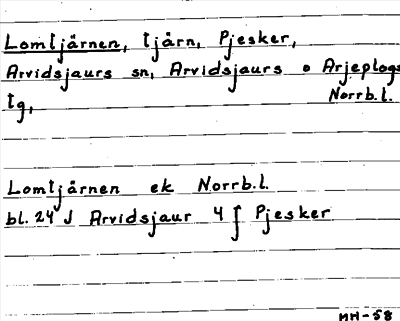 Lomtjärnen, tjärn, Pjesker,
Arvidsjaurs sn, Arvidsjaurs o Arjeplogs
tg, Norrb.l.
Lomtjärnen ek Norrb.l.
bl. 24 J Arvidsjaur 4 f Pjesker
MH-58